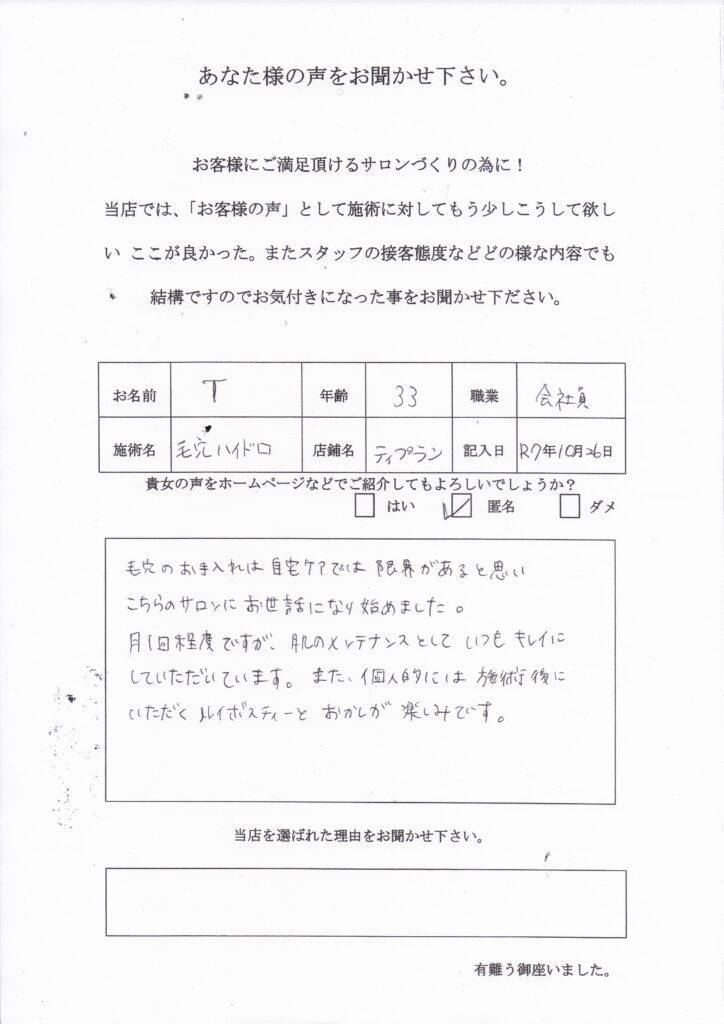 あなた様の声をお聞かせ下さい。
お客様にご満足頂けるサロンづくりの為に！
当店では、「お客様の声」として施術に対してもう少しこうして欲し
い ここが良かった。またスタッフの接客態度などどの様な内容でも
結構ですのでお気付きになった事をお聞かせ下ださい。
お名前 T 年齢 33 職業 会社員
施術名 毛穴ハイドロ 店舗名 ティプラン 記入日 R7年10月26日
貴女の声をホームページなどでご紹介してもよろしいでしょうか？
はい 匿名 ダメ
毛穴のお手入れは自宅ケアでは限界があると思い
こちらのサロンにお世話になり始めました。
月1回程度ですが、肌のメンテナンスとしていつもキレイに
していただいています。また、個人的には施術後に
いただくルイボスティーとおかしが楽しみです。
当店を選ばれた理由をお聞かせ下さい。
有難う御座いました。